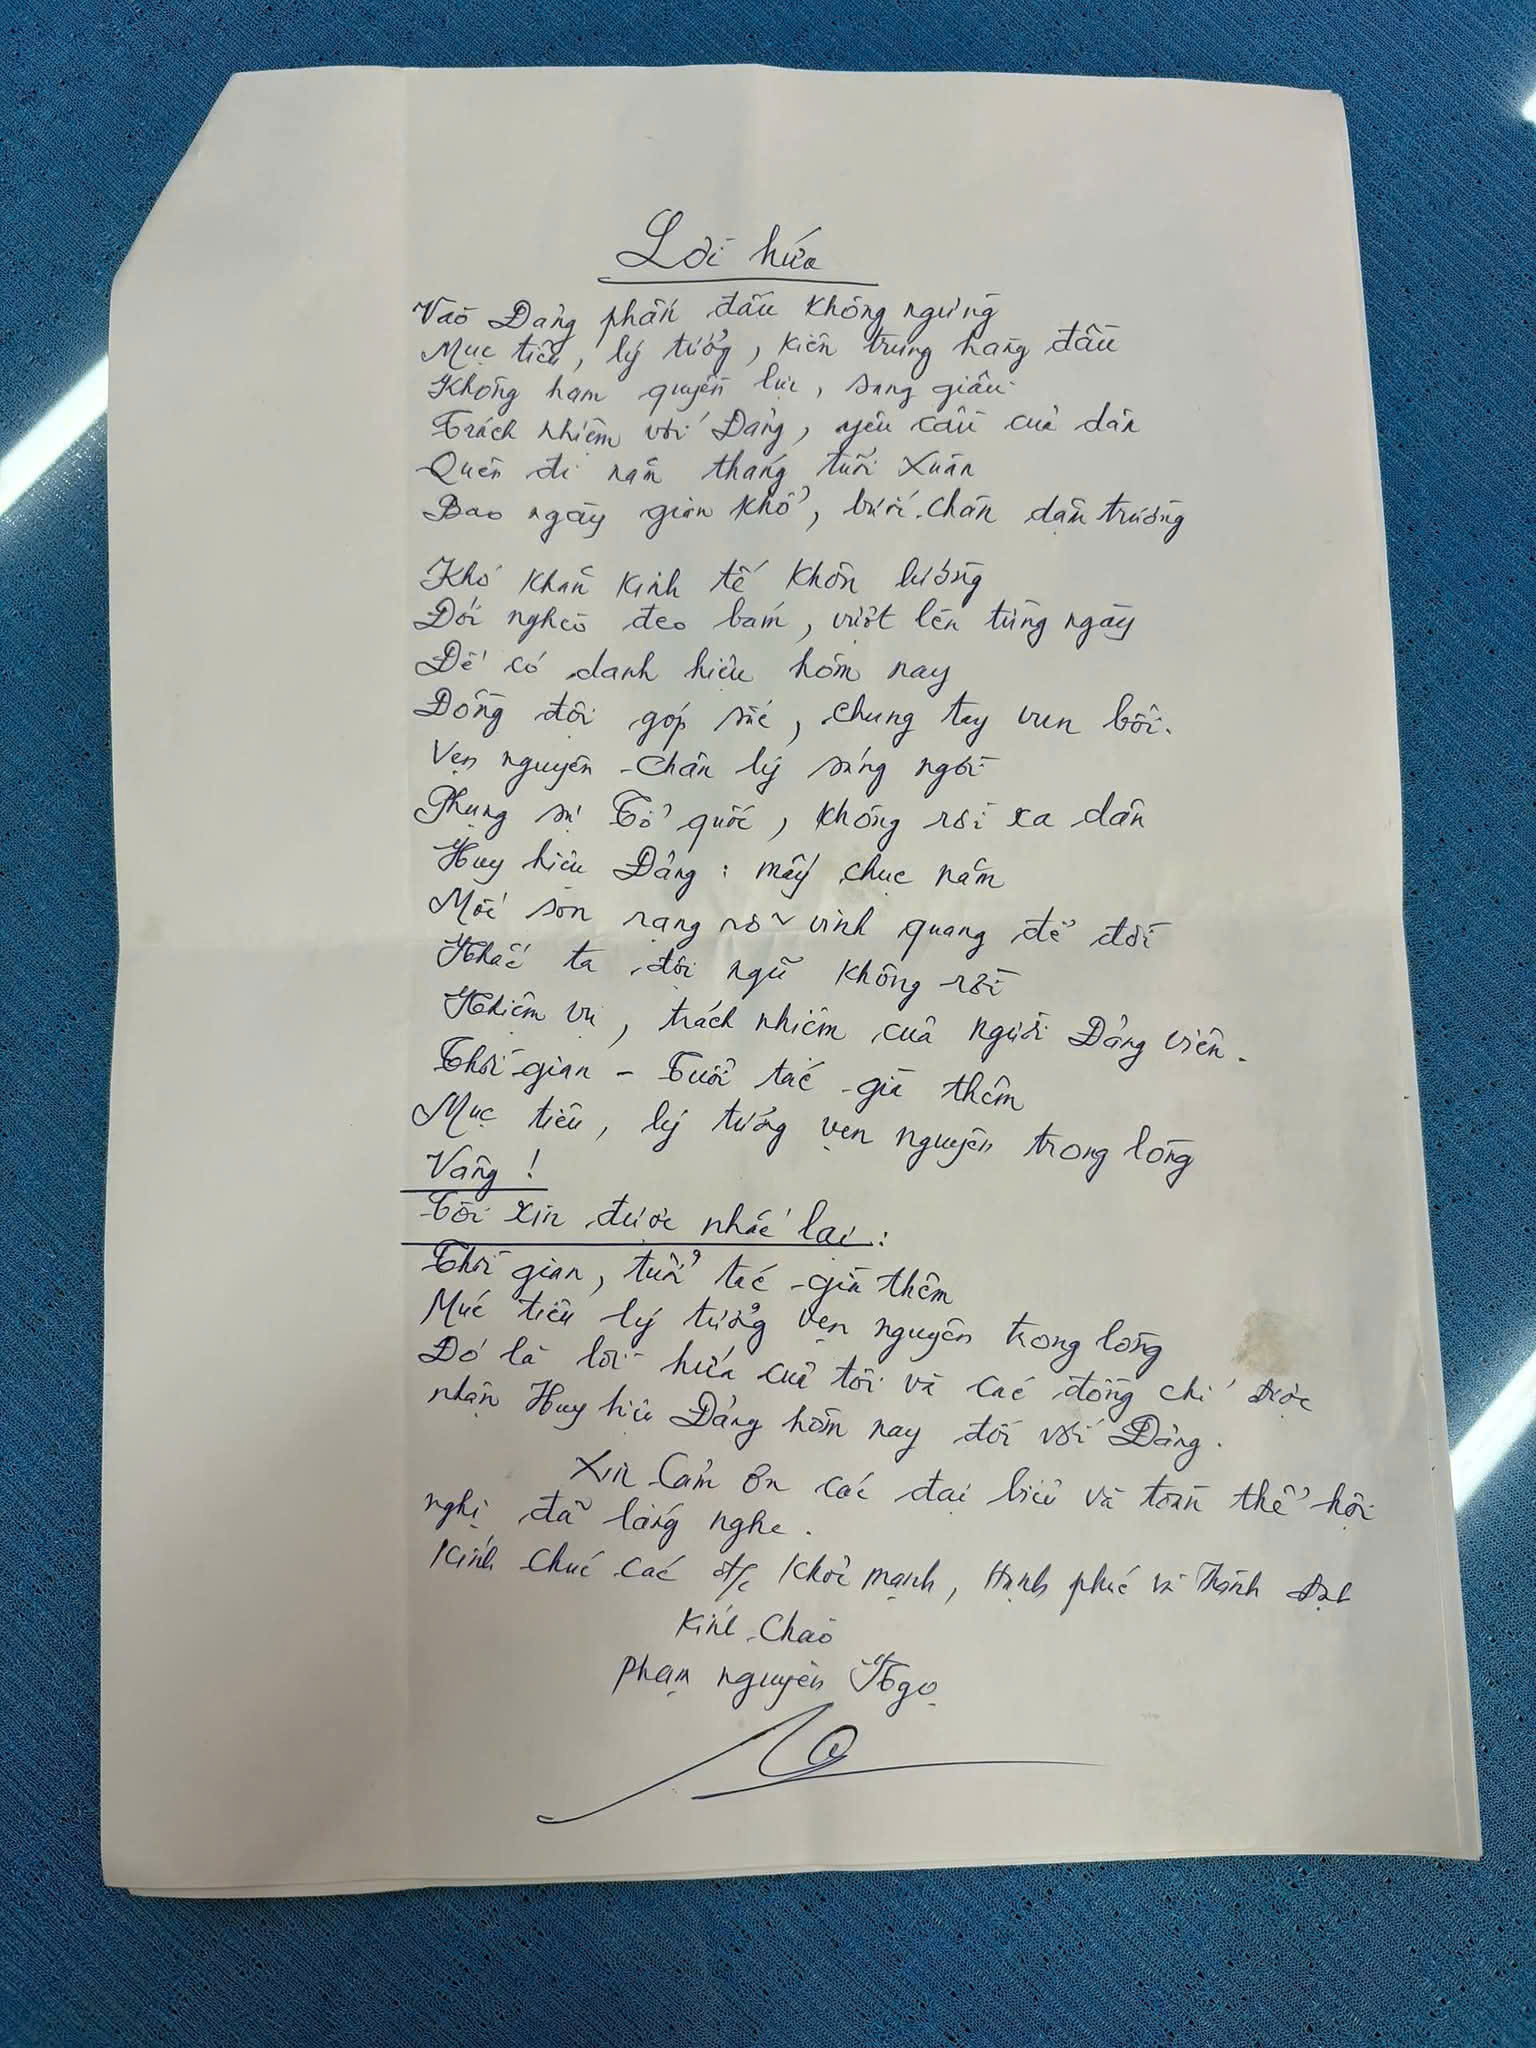 Lời hứa
Vào Đảng phấn đấu không ngừng
Mục tiêu, lý tưởng, kiên trung hàng đầu
Không ham quyền lực, sang giầu
Trách nhiệm với Đảng, yêu cầu của dân
Quên đi năm tháng tuổi xuân
Bao ngày gian khổ, bước chân dặm trường
Khó khăn kinh tế khôn lường
Đói nghèo đeo bám, vượt lên từng ngày
Để có danh hiệu hôm nay
Đồng đội góp sức, chung tay vun bồi.
Vẹn nguyên chân lý sáng ngời
Phụng sự Tổ quốc, không rời xa dân
Huy hiệu Đảng: mấy chục năm
Mới son rạng rỡ vinh quang để đời
Nhắc ta đội ngũ không rời
Nhiệm vụ, trách nhiệm của người Đảng viên.
Thời gian - Tuổi tác già thêm
Mục tiêu, lý tưởng vẹn nguyên trong lòng
Vâng!
Tôi xin được nhắc lại:
Thời gian, tuổi tác già thêm
Mục tiêu lý tưởng vẹn nguyên trong lòng
Đó là lời hứa của tôi và các đồng chí được
nhận Huy hiệu Đảng hôm nay đối với Đảng.
Xin Cảm ơn các đại biểu và toàn thể hội
nghị đã lắng nghe.
Kính chúc các đ/c khỏe mạnh, Hạnh phúc và Thành đạt
Kính chào
Phạm nguyên Ngọ